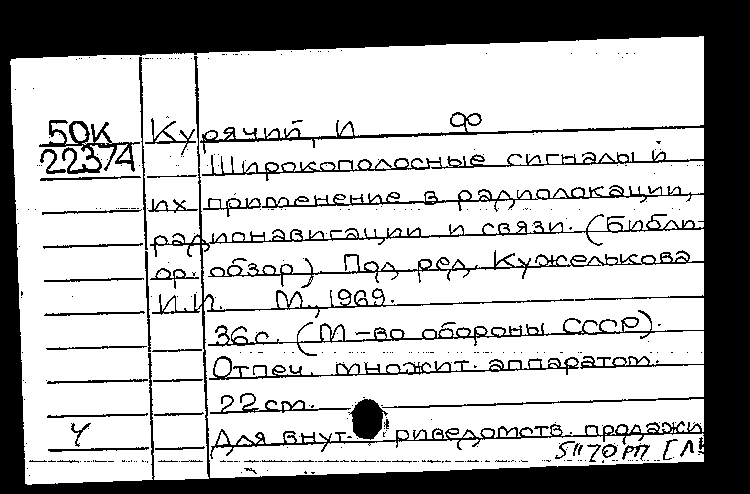 50К Курячий, И Ф
223/4 Широкополосные сигналы и
их применение в радиолокации,
радионавигации и связи. (Библи-
ор. обзор). Под ред. Кужелькова
И.И. М., 1969.
36с. (М-во обороны СССР).
Отпеч. множит. аппаратом.
22 cm.
Для внут риведомств. продажи